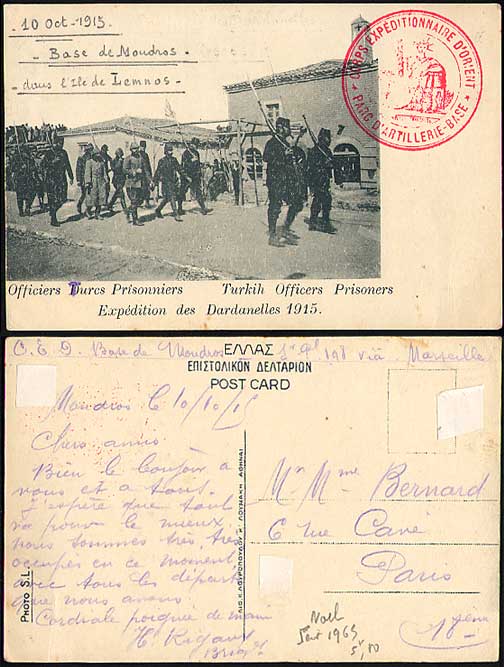 10 Oct-1915
Base de Moudros
dans l'Ile de Lemnos
CORPS EXPÉDITIONNAIRE D'ORIENT
PARC D'ARTILLERIE-BASE
Officiers Turcs Prisonniers Turkih Officers Prisoners
Expédition des Dardanelles 1915.
C.E.D. Base de Moudros 198 viâ Marseille
ΕΛΛΑΣ
ΕΠΙΣΤΟΛΙΚΟΝ ΔΕΛΤΑΡΙΟΝ
POST CARD
Moudros le 10/10/15
Chers amis
Bien le bonjour a
vous et a tous.
J'espère que tout
va pour le mieux
nous sommes très, très
occupés en ce moment
avec tous les départs
que nous avons
Cordiale poignée de main
H. Rigaud
Brig
PHOTO S.L.
Mr Mme Bernard
6 rue Cavé
Paris
18ème
Noel
1963